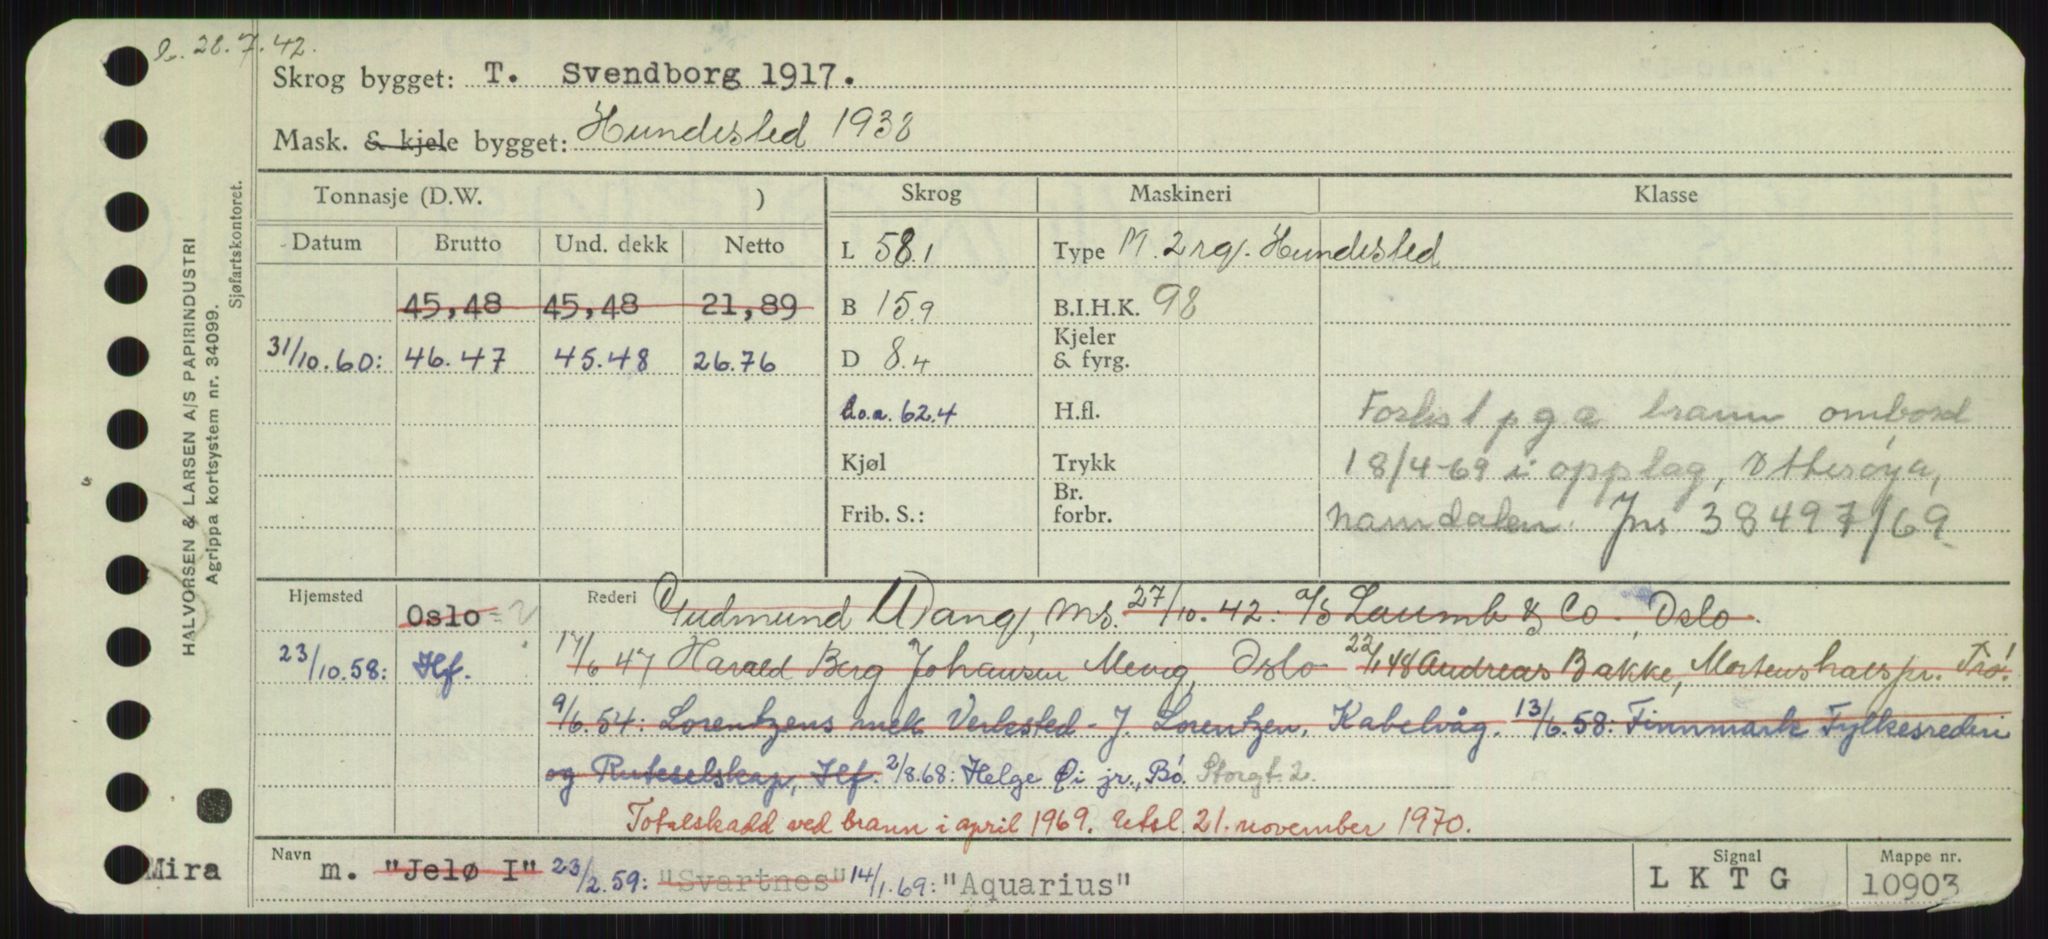 28.7.42.
Skrog bygget: T. Svendborg 1917.
Mask. & kjele bygget: Hundested 1938
HALVORSEN & LARSEN A/S PAPIRINDUSTRI
Agrippa kortsystem nr. 34099.
Sjøfartskontoret.
Tonnasje (D.W. ) Skrog Maskineri Klasse
Datum Brutto Und. dekk Netto L 58.1 Type M. 2 rq. Hundested
45,48 45,48 21,89 B 15.9 B.I.H.K. 98
31/10.60: 46.47 45.48 26.76 D 8.4 Kjeler & fyrg.
L.o.a. 62.4 H.fl. Forlist p g a brann ombord
Kjøl Trykk 18/4-69 i opplag, Otterøya,
Frib. S.: Br. forbr. Namdalen. Jns 38497/69
Hjemsted Oslo Rederi Gudmund Wang, Ms. 27/10.42: A/S Laumb & Co., Oslo.
23/10.58: Hf. 17/6 47 Harald Berg Johansen Mevig, Oslo 22/1 48 Andreas Bakke, Mortenshals pr. Trø.
9/6.54: Lorentzens mek Verksted - J. Lorentzen, Kabelvåg. 13/6.58: Finnmark Fylkesrederi
og Ruteselskap, Hf. 2/8.68: Helge Øi jr., Bö. Storgt. 2.
Totalskadd ved brann i april 1969. Utsl. 21. november 1970.
Mira Navn m. "Jelø I" 23/2.59: "Svartnes" 14/1.69: "Aquarius" Signal L K T G Mappe nr. 10903